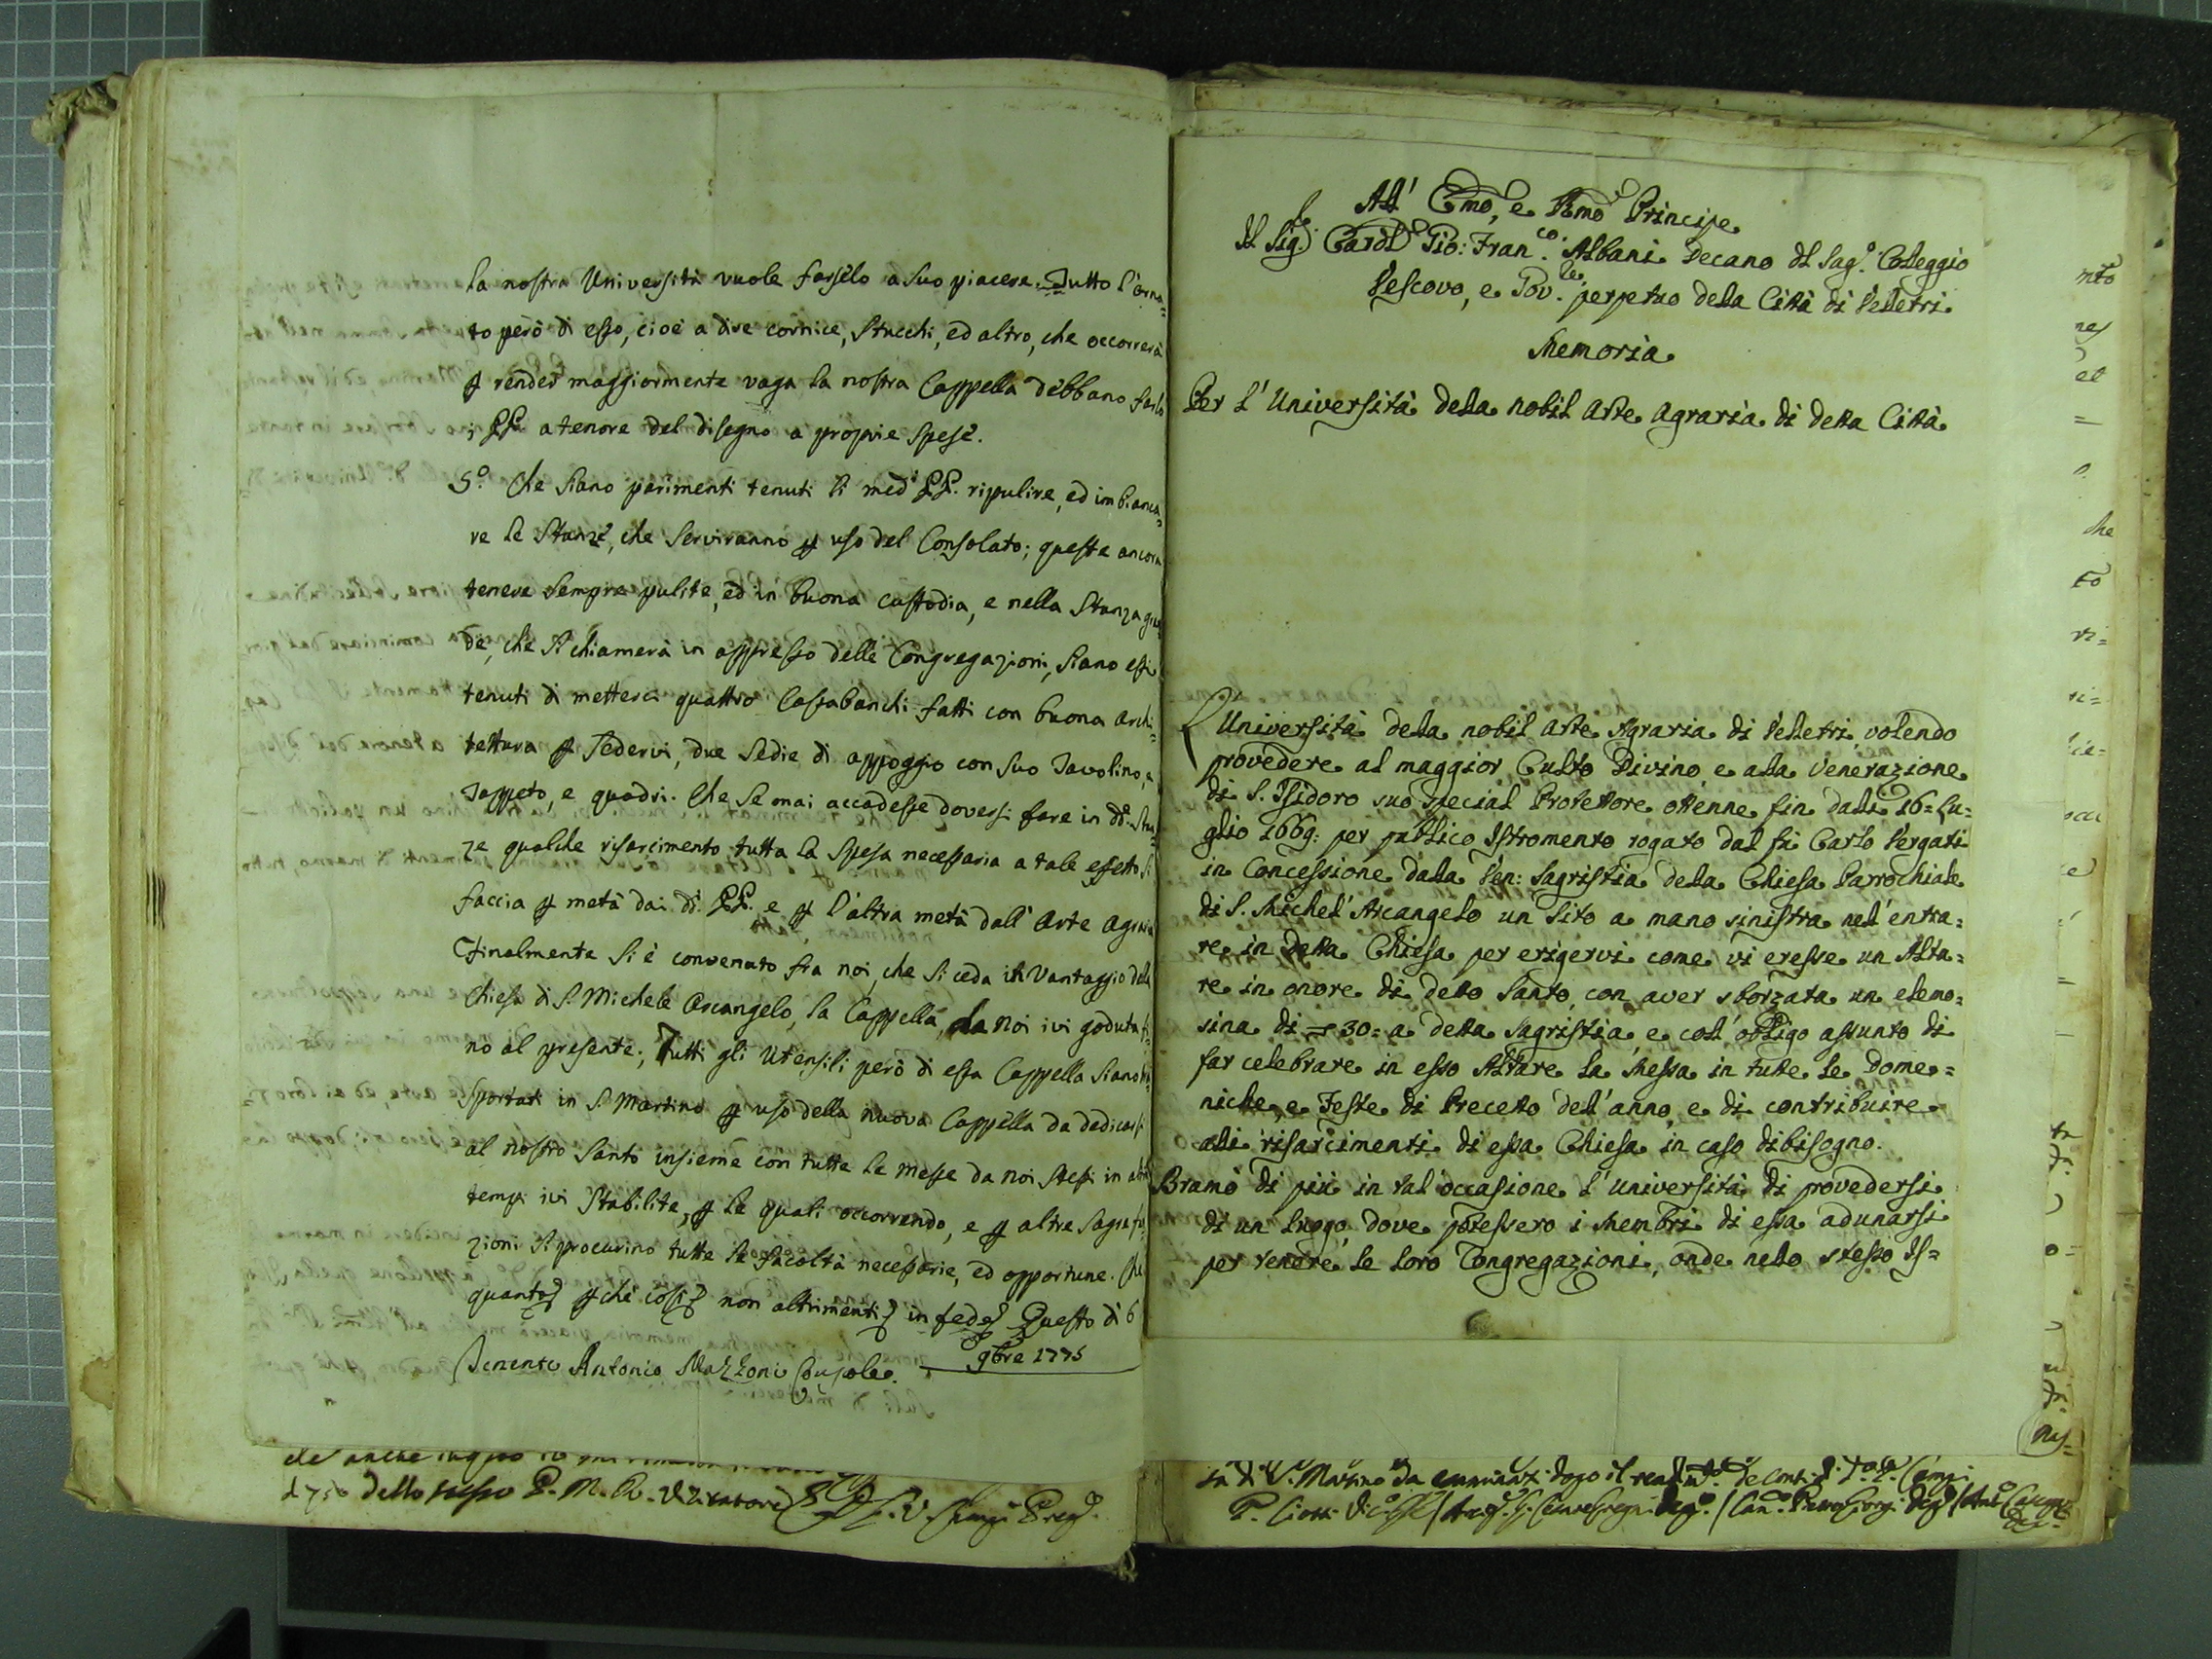 la nostra Università vuole farselo a suo piacere. Tutto l'orna=
to però di esso, cioè a dire cornice, stucchi, ed altro, che occorrerà
render maggiormente vaga la nostra Cappella debbano farlo
i PP. a tenore del disegno a proprie spese.
5.º Che siano parimenti tenuti li med.i PP. ripulire, ed imbianca=
re le stanze, che serviranno uso del Consolato; queste ancora
tenere sempre pulite, ed in buona custodia, e nella stanza
de, che si chiamerà in appresso delle Congregazioni, siano essi
tenuti di metterci quattro Cassabanchi fatti con buona archi=
tettura sedervi, due sedie di appoggio con suo Tavolino, e
Tappeto, e quadri. Che se mai accadesse doversi fare in dd.e Stan=
ze qualche risarcimento tutta la spesa necessaria a tale effetto si
faccia metà dai dd. PP. e l'altra metà dall'Arte Agraria
Finalmente si è convenuto fra noi, che si ceda in vantaggio della
Chiesa di S. Michele Arcangelo, la Cappella, da noi ivi goduta fi=
no al presente; Tutti gli Utensili però di essa Cappella siano
sportati in S. Martino uso della nuova Cappella da dedicarsi
al nostro Santo insieme con tutte le messe da noi stessi in altri
tempi ivi stabilite, le quali occorrendo, e altre sagre fu=
zioni si procurino tutte le facoltà necessarie, ed opportune.
quanto che così non altrimenti in fede Questo dì 6
9bre 1775
Tenente Antonio Mazzoni Console
dello stesso P. M. R. Visitatore
All' Emo, e Rmo Principe
Il Sig.e Cardl Gio: Fran.co Albani Decano dl Sag.o Collegio
Vescovo, e Gov.le perpetuo della Città di Velletri
Memoria
Per l'Università della nobil Arte Agraria di detta Città
L'Università della nobil Arte Agraria di Velletri, volendo
provedere al maggior Culto Divino, e alla Venerazione
di S. Isidoro suo special Protettore ottenne fin dalli 16= Lu=
glio 1669: per publico Istromento rogato dal fù Carlo Vergati
in Concessione dalla Ven: Sagristia della Chiesa Parrochiale
di S. Michel'Arcangelo un sito a mano sinistra nell'entra=
re in detta Chiesa per erigervi come vi eresse un Alta=
re in onore di detto Santo, con aver sborzata un elemo=
sina di 30= a detta Sagristia, e coll'obligo assunto di
far celebrare in esso Altare la Messa in tutte le Dome=
niche, e Feste di Precetto dell'anno, e di contribuire
alli risarcimenti di essa Chiesa in caso di bisogno.
Bramò di più in tal'occasione l'Università di provedersi
di un luogo, dove potessero i Membri di essa adunarsi
per tenere le loro Congregazioni, onde nello stesso Is=